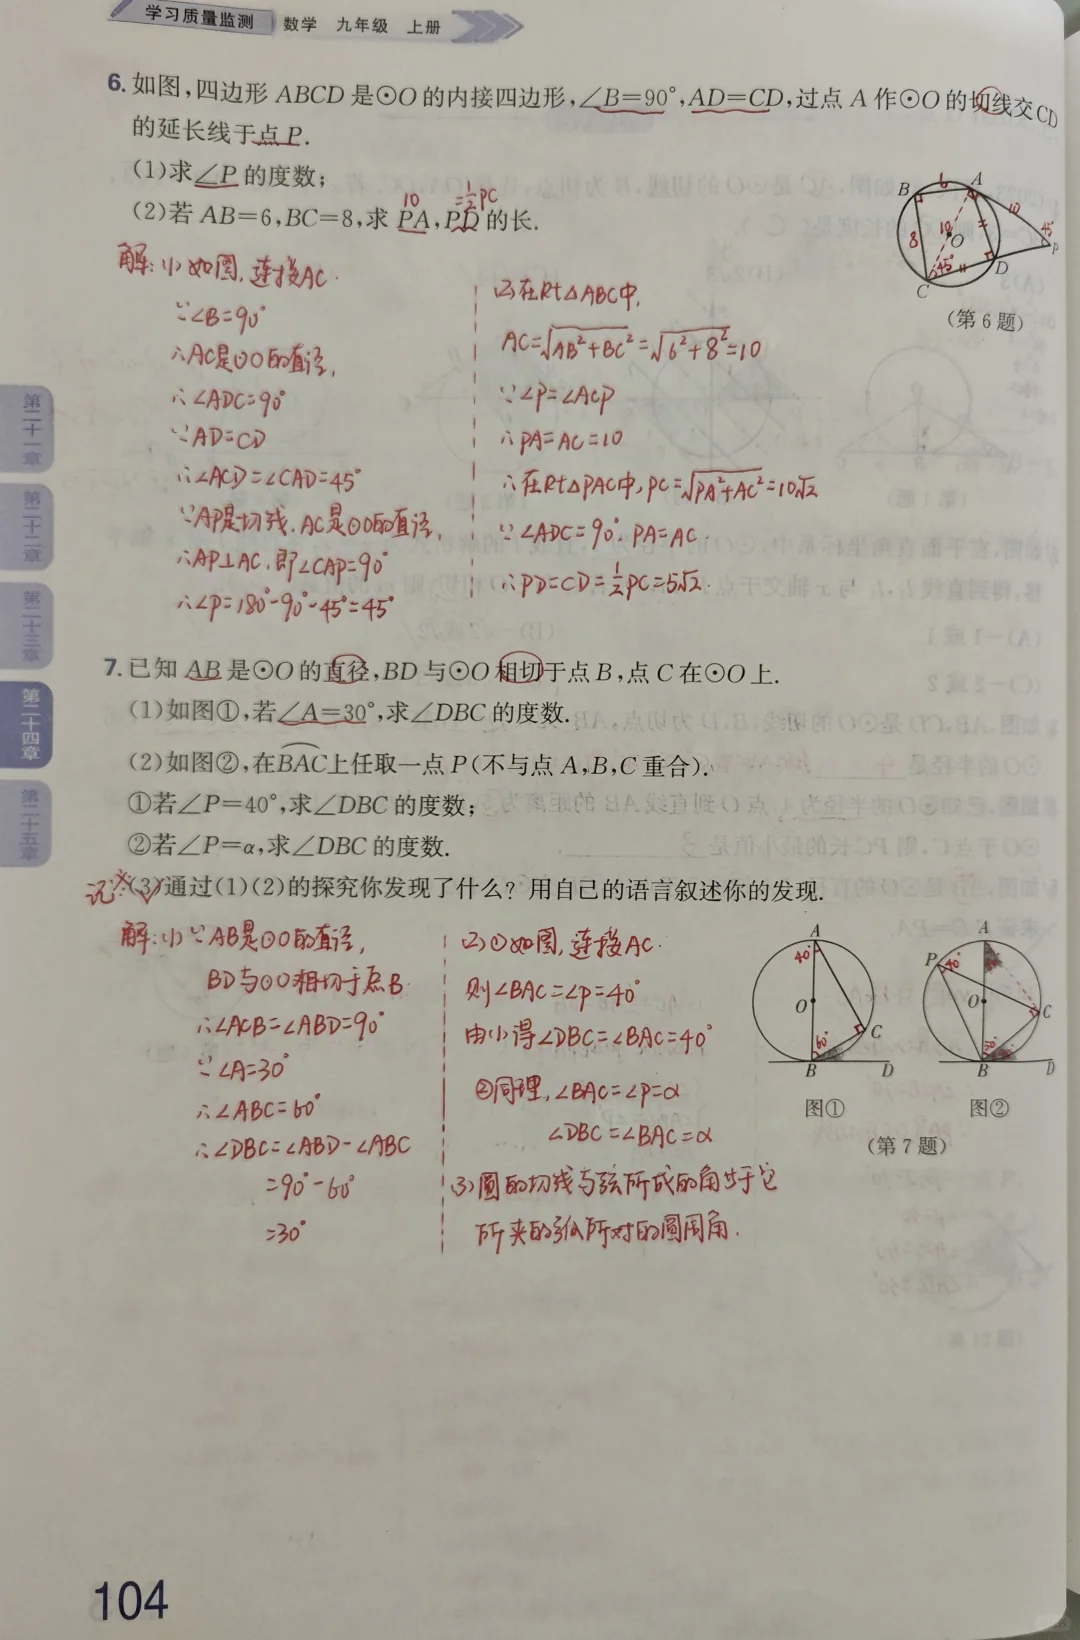 学习质量监测 数学 九年级 上册
6. 如图,四边形 ABCD 是⊙O 的内接四边形,∠B=90°,AD=CD,过点 A 作⊙O 的切线交CD
的延长线于点 P.
(1)求∠P 的度数;
10 =½PC
(2)若 AB=6,BC=8,求 PA,PD 的长.
解:(1)如图,连接AC.
∵∠B=90°
∴AC是⊙O的直径,
∴∠ADC=90°
∵AD=CD
∴∠ACD=∠CAD=45°
∵AP是切线,AC是⊙O的直径,
∴AP⊥AC,即∠CAP=90°
∴∠P=180°-90°-45°=45°
(2)在Rt△ABC中,
AC=√(AB²+BC²)=√(6²+8²)=10
∵∠P=∠ACP
∴PA=AC=10
∴在Rt△PAC中,PC=√(PA²+AC²)=10√2
∵∠ADC=90°,PA=AC.
∴PD=CD=½PC=5√2.
B 6 A 10 45° P
8 10 O
45° D
C
(第 6 题)
7. 已知 AB 是⊙O 的直径,BD 与⊙O 相切于点 B,点 C 在⊙O 上.
(1)如图①,若∠A=30°,求∠DBC 的度数.
(2)如图②,在BAC上任取一点 P(不与点 A,B,C 重合).
①若∠P=40°,求∠DBC 的度数;
②若∠P=α,求∠DBC 的度数.
记 (3)通过(1)(2)的探究你发现了什么? 用自己的语言叙述你的发现.
解:(1)∵AB是⊙O的直径,
BD与⊙O相切于点B.
∴∠ACB=∠ABD=90°
∵∠A=30°
∴∠ABC=60°
∴∠DBC=∠ABD-∠ABC
=90°-60°
=30°
(2)①如图,连接AC.
则∠BAC=∠P=40°
由(1)得∠DBC=∠BAC=40°
②同理,∠BAC=∠P=α
∠DBC=∠BAC=α
(3)圆的切线与弦所成的角等于它
所夹的弧所对的圆周角.
A
40°
O
C
60°
B D
图①
A
P 40°
O
C
B D
图②
(第 7 题)
第二十一章
第二十二章
第二十三章
第二十四章
第二十五章
104